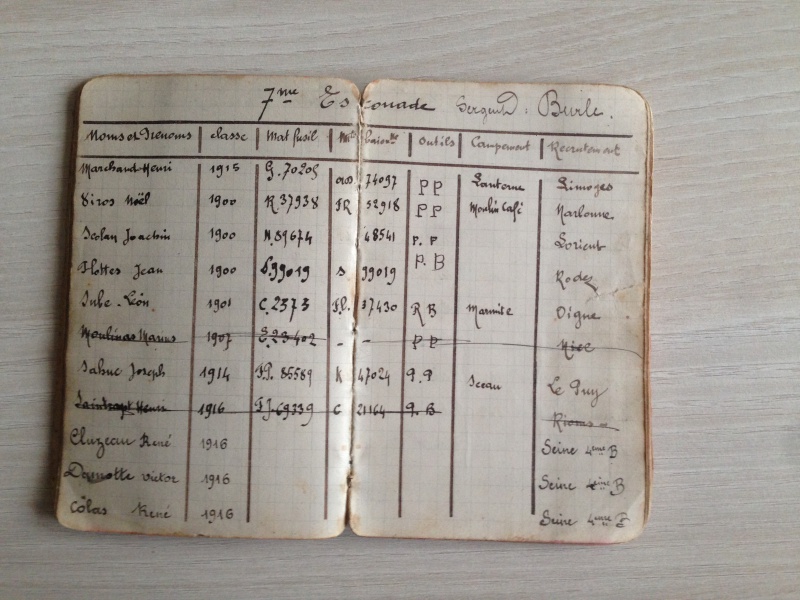 7me Escouade Sergent D : Burle.
Noms et Prénoms classe Mat fusil Mle baionnte Outils Campement Recrutement
Marchand Henri 1915 G. 70205 74097 PP Lanterne Limoges
Siros Noël 1900 R 37938 FR 52918 PP Moulin Café Narbonne
Scolan Joachin 1900 N. 89674 48541 P. P Lorient
Flottes Jean 1900 S. 99019 S 99019 P. B Rodez
Jube Léon 1901 C. 2373 37430 R B Marmite Digne
Moulinas Marius 1907 E. 23402 - - PP Nice
Sahuc Joseph 1914 85589 K 47024 P. P Sceau Le Puy
Henri 1916 69339 C 21164 P. B Riom
Cluzeau René 1916 Seine 4eme B
Damotte victor 1916 Seine 4eme B
Colas René 1916 Seine 4eme B